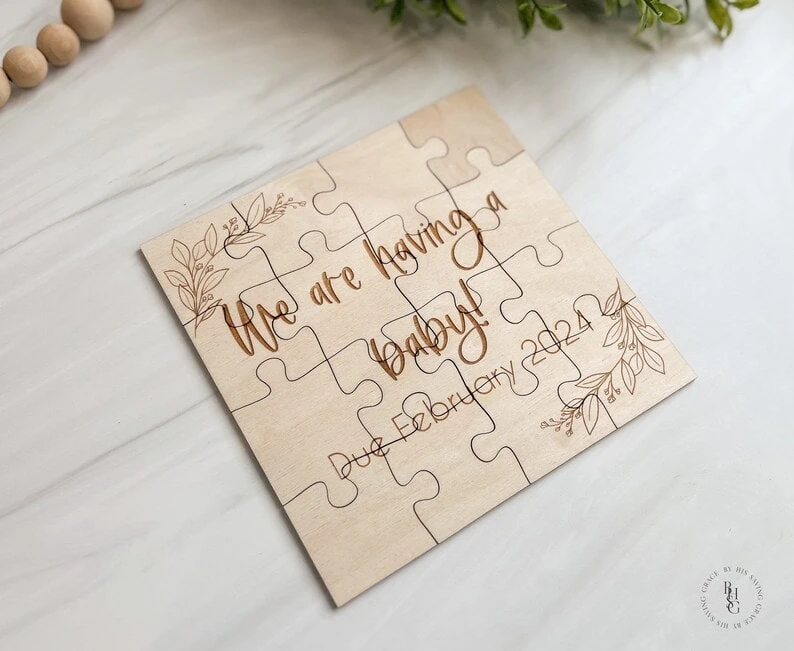 We are having a
baby!
Due February 2024
BY HIS SAVING GRACE BY HIS SAVING GRACE
BHSG